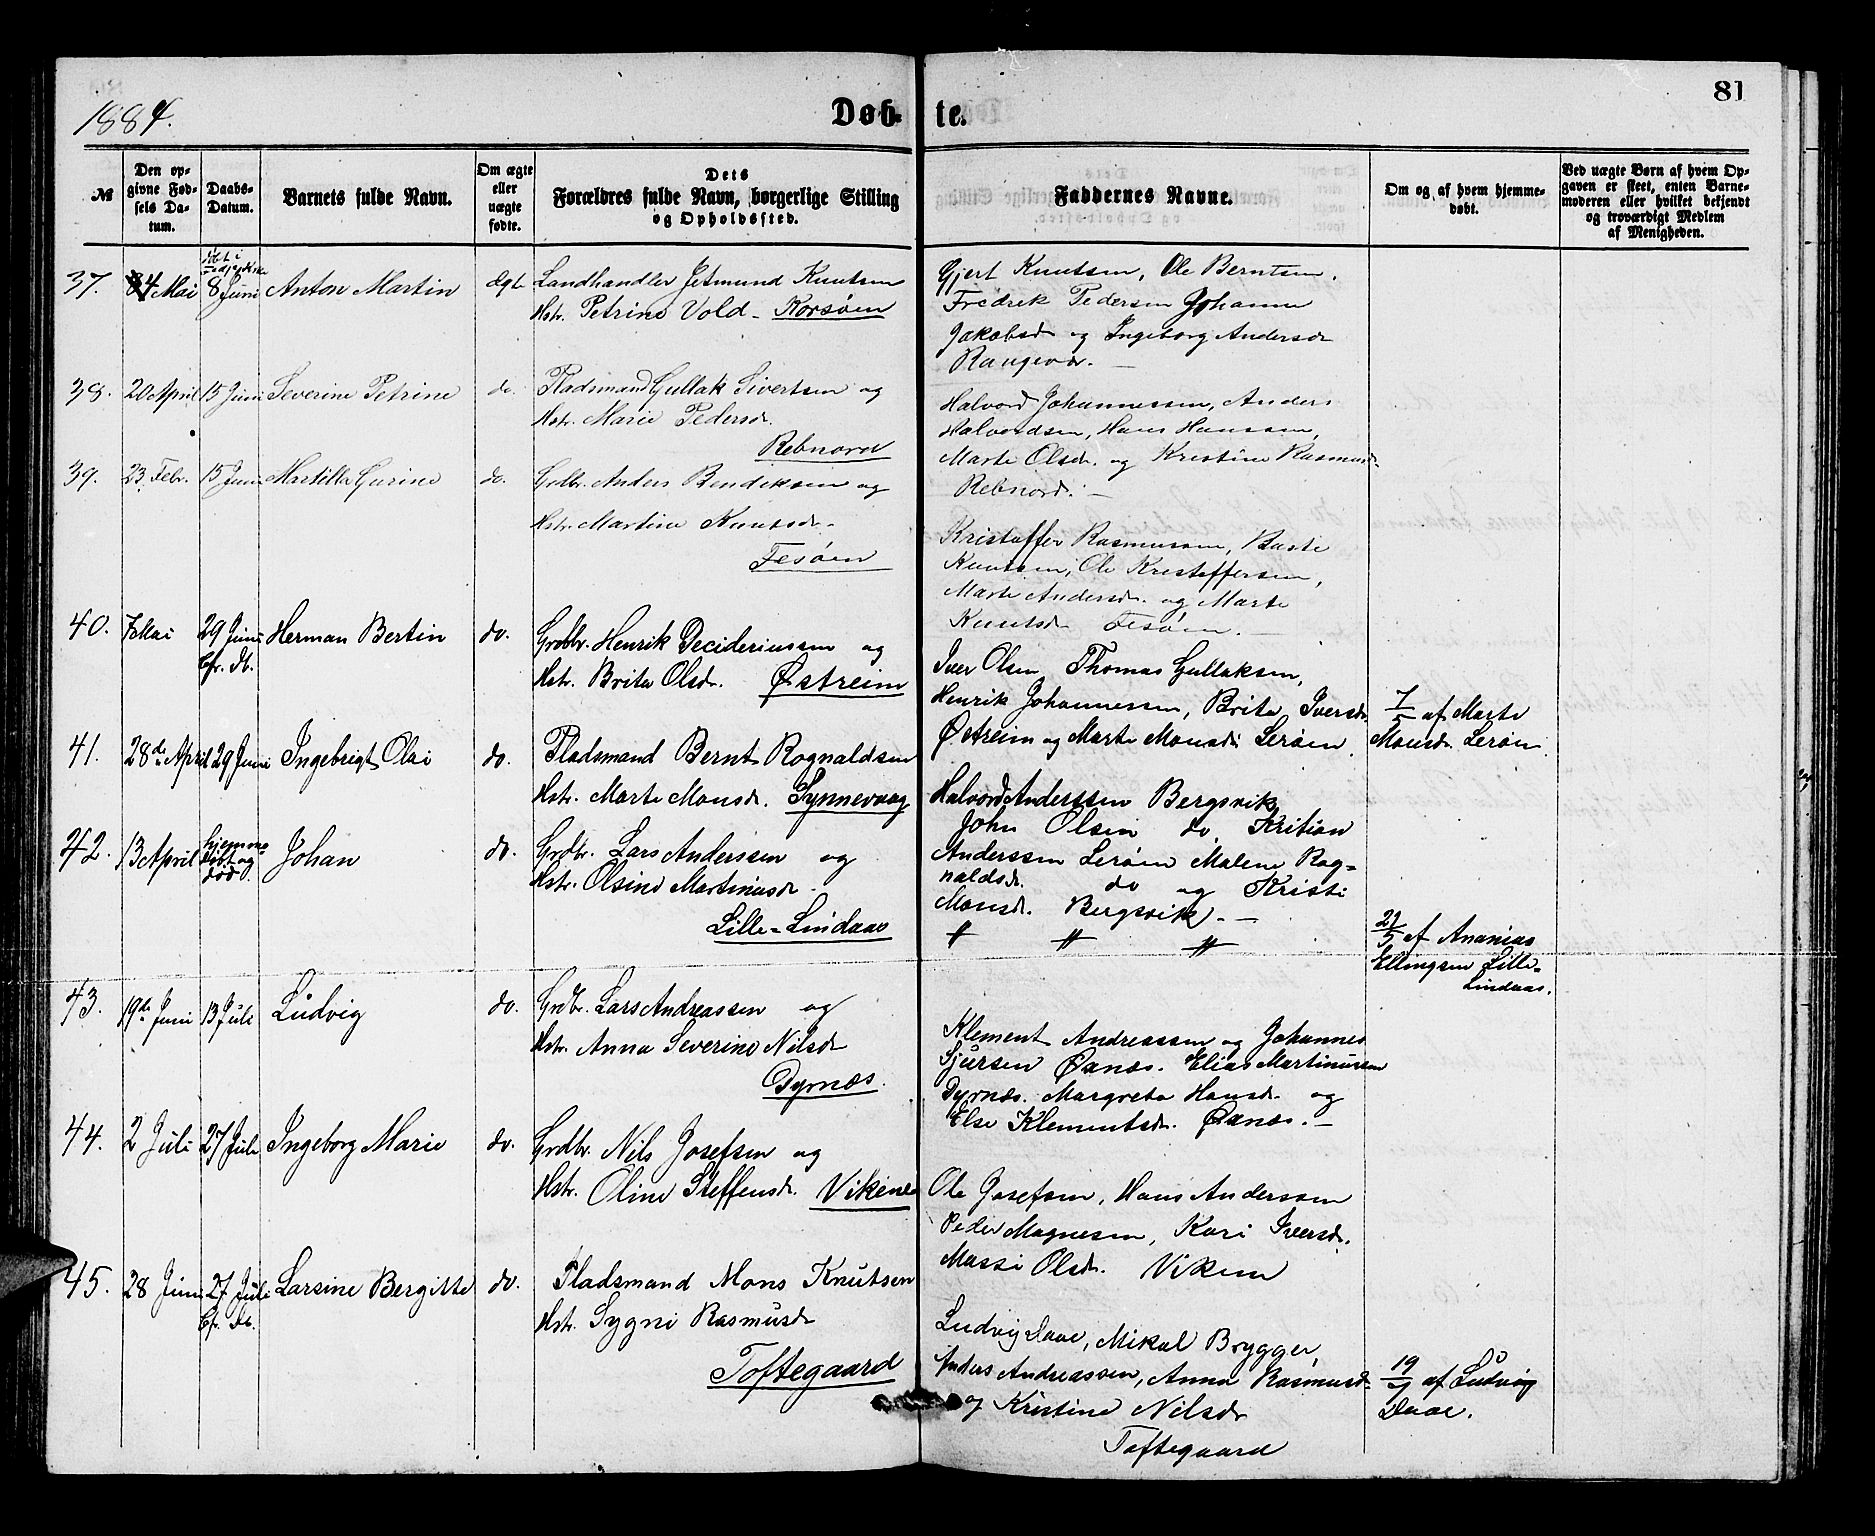 1884.
Døb- te.
81
№
Den op-
givne Fød-
sels Da-
tum.
Daabs-
Datum.
Barnets fulde Navn.
Om ægte
eller
uægte
fødte.
Dets
Forældres fulde Navn, borgerlige Stilling
og Opholdssted.
Faddernes Navne.
Om og af hvem hjemme-
døbt.
Ved uægte Børn af hvem Op-
gaven er skeet, enten Barne-
moderen eller hvilket bekjendt
og troværdigt Medlem
af Menigheden.
37. 4 Mai døbt i
8 Juni Anton Martin Ægt. Landhandler Jetmund Knutsen
Hstr. Petrine Vold - Korsøen
Gjert Knutsen, Ole Berntsen.
Fredrik Pedersen Johanne
Jakobsdr og Ingeborg Andersdr
38. 20 April 15 Juni Severine Petrine do. Pladsmand Gullak Sivertsen og
Hstr. Marie Pedersdr.
Rebnord
Halvord Johannessen, Anders
Halvordsen, Hans Hanssen,
Marte Olsdr. og Kristine Rasmusdr.
Rebnord. -
39. 23. Febr. 15 Juni Martille Gurine do. Grdbr. Anders Bendiksen og
Hstr. Martine Knutsdr.
Fesøen
Kristoffer Rasmussen, Baste
Knutsen, Ole Kristoffersen,
Marte Andersdr. og Marte
Knutsdr Fesøen. -
40. 7 Mai 29 Juni Herman Bertin do. Grdbr. Henrik Decideriussen og
Cfr. Db.
Hstr. Brita Olsdr. Østreim
Iver Olsen, Thomas Gullaksen,
Henrik Johannessen, Brita Iversdr
Østreim og Marte Monsdr. Lerøen.
7/5 af Marte
Monsdr. Lerøen
41. 28de April 29 Juni Ingebrigt Olai do. Pladsmand Bernt Rognaldsen
Hstr. Marte Monsdr. Synnevaag
Halvord Anderssen Bergsvik
John Olsen do Kristian
Anderssen Lerøen Malene Rog-
naldsdr. do og Kristi
Monsdr. Bergsvik. -
42. 13 April hjemme
døbt og
død. Johan do. Grdbr. Lars Anderssen og
Hstr. Olsine Martinusdr.
Lille-Lindaas
" " "
21/5 af Ananias
Ellingsen Lille-
Lindaas.
43. 19de Juni 13 Juli Ludvig do. Grdbr. Lars Andreassen og
Hstr. Anna Severine Nilsdr
Dyrnæs.
Klement Andreassen og Johannes
Sjursen Øxnæs. Elias Martinussen
Dyrnæs. Margrete Hansdr. og
Else Klementsdr. Øxnæs. -
44. 2 Juli 27 Juli Ingeborg Marie do. Grdbr. Nils Josefsen og
Hstr. Oline Steffensdr. Vikene
Ole Josefsen, Hans Anderssen
Peder Magnesen, Kari Iversdr.
Massi Olsdr. Vikene
45. 28 Juni 27 Juli Larsine Bergitte do. Pladsmand Mons Knutsen
Cfr. Db.
Hstr. Sygni Rasmusdr
Toftegaard
Ludvig Daae, Mikal Brygger,
Anders Andreassen, Anna Rasmusdr.
og Kristine Nilsdr
Toftegaard
19/7 af Ludvig
Daae.